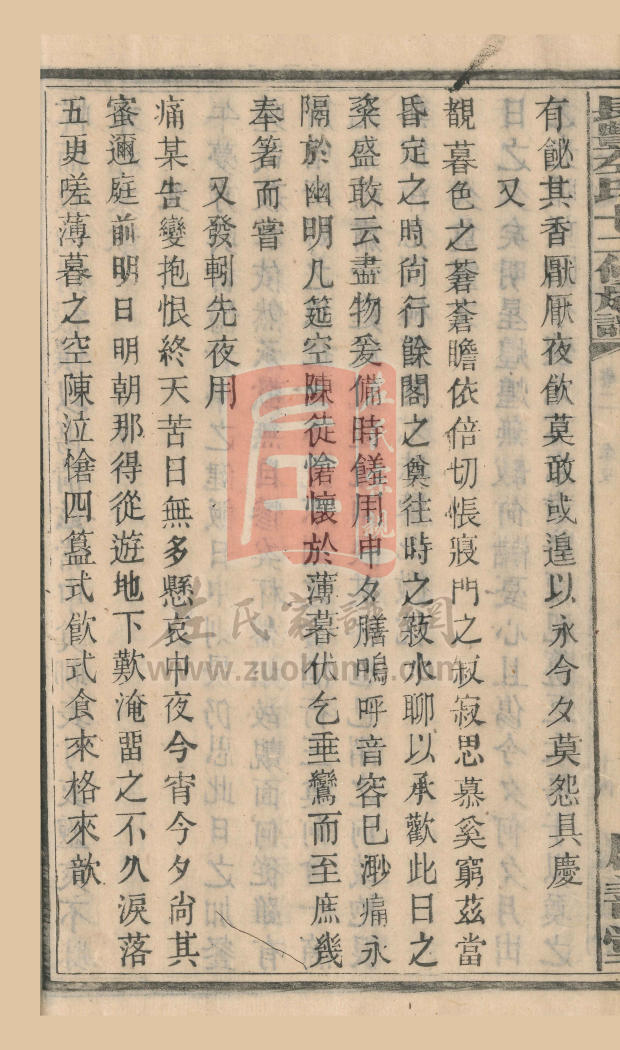 有飶其香厭厭夜飮莫敢或遑以永今夕莫怨具慶
又
覩暮色之蒼蒼瞻依倍切悵寢門之寂思慕奚窮茲當
昏定之時尙行餘閣之奠往時之菽水聊以承歡此日之
粢盛敢云盡物爰備時饈用申夕膳嗚呼音容已渺痛永
隔於幽明几筵空陳徒愴懷於薄暮伏乞垂鸞而至庶幾
奉箸而嘗
又發軔先夜用
痛某告變抱恨終天苦日無多懸哀中夜今宵今夕尙其
蜜邇庭前明日明朝那得從遊地下歎淹畱之不久淚落
五更嗟薄暮之空陳泣愴四簋式飮式食來格來歆
左氏家譜網
www.zuoshunet.com